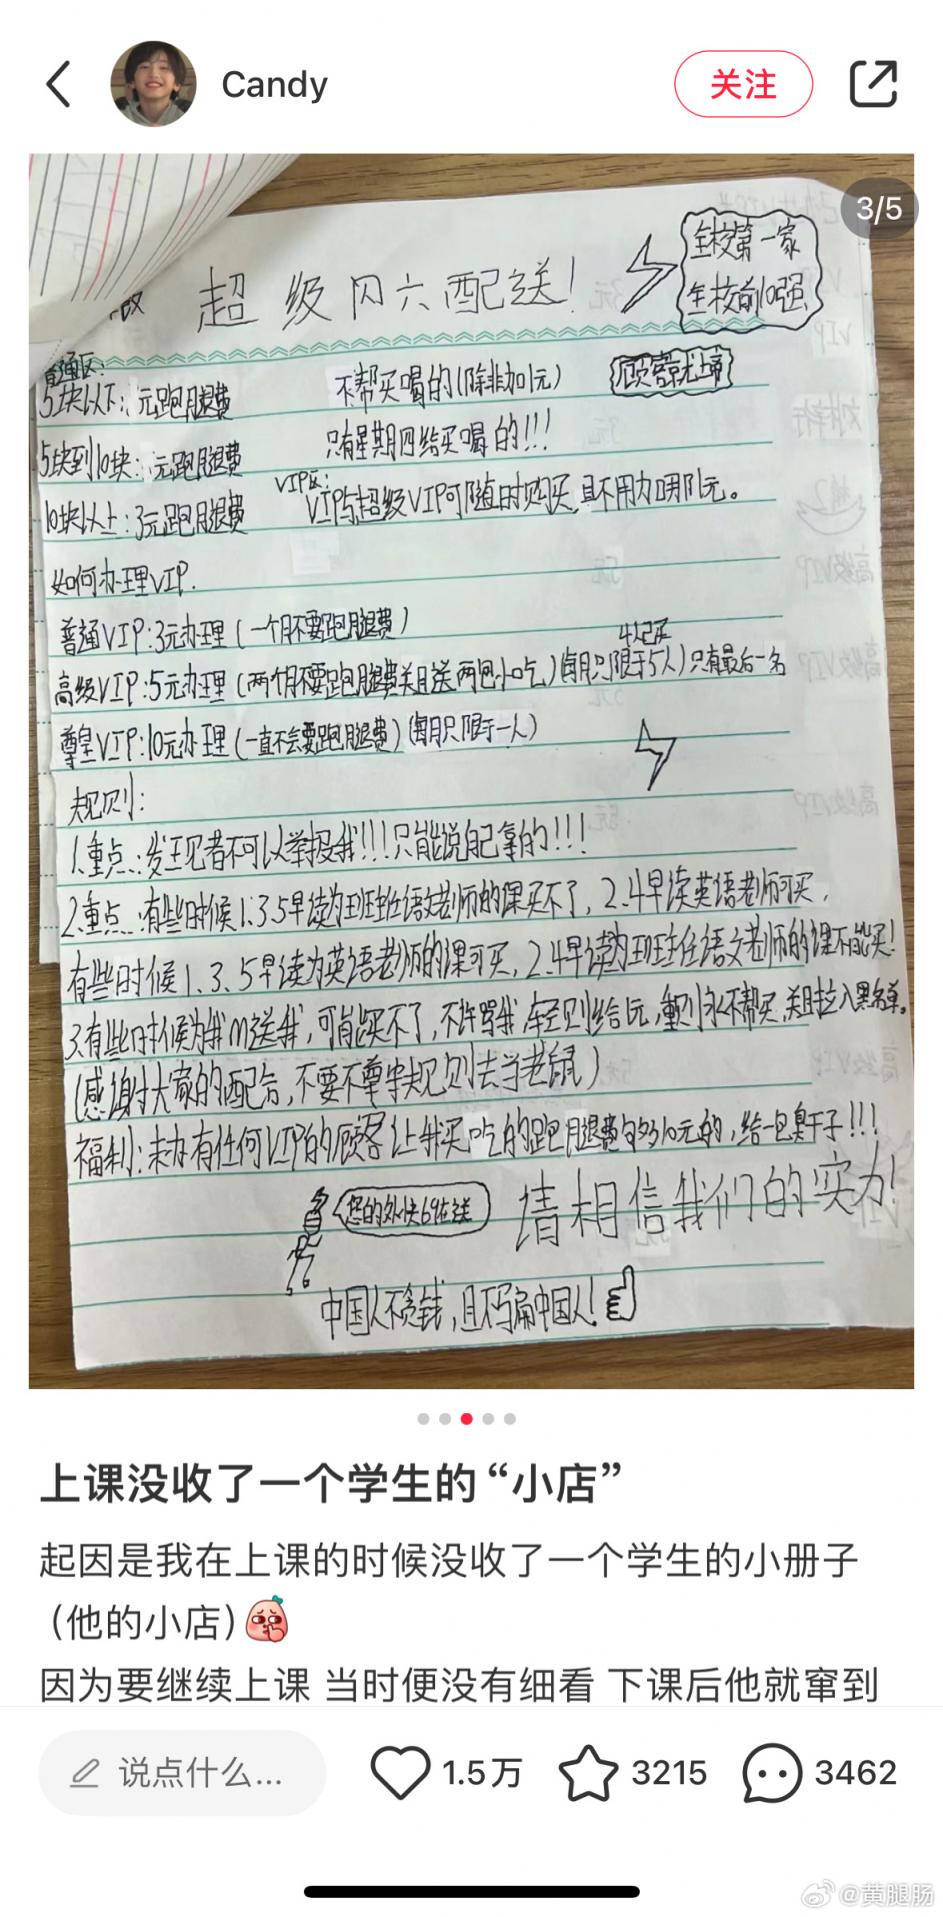 Candy
关注
3/5
超级闪六配送!
全校第一家
全校前10强
顾客就是
普通区:
5块以下:1元跑腿费
不帮买喝的(除非加1元)
5块到10块:1元跑腿费
只有星期四给买喝的!!!
VIP区:
10块以上:3元跑腿费
VIP与超级VIP可随时购买,且不用加那1元。
如何办理VIP.
普通VIP:3元办理(一个月不要跑腿费)
高级VIP:5元办理(两个月不要跑腿费并且送两包小吃)(每月只限于5人)只有最后一名
尊皇VIP:10元办理(一直不会要跑腿费)(每月只限于一人)
规则:
1.重点:发现者不可以举报我!!!只能说自己拿的!!!
2.重点:有些时候1.3.5早读为班主任语文老师的课买不了,2.4早读英语老师可买,
有些时候1.3.5早读为英语老师的课可买,2.4早读为班主任语文老师的课不能买!
3.有些时候为我m送我,可能买不了,不许骂我,轻则给1元,重则永不帮买,并且拉入黑名单。
(感谢大家的配合,不要不尊守规则去当老鼠)
福利:未办有任何VIP的顾客让我买吃的跑腿费句多10元的,给一包臭干子!!!
您的外快6在送
请相信我们的实力!
中国人不贪钱,且不骗中国人!
上课没收了一个学生的“小店”
起因是我在上课的时候没收了一个学生的小册子
(他的小店)
因为要继续上课 当时便没有细看 下课后他就窜到
说点什么...
1.5万
3215
3462
@黄腿肠